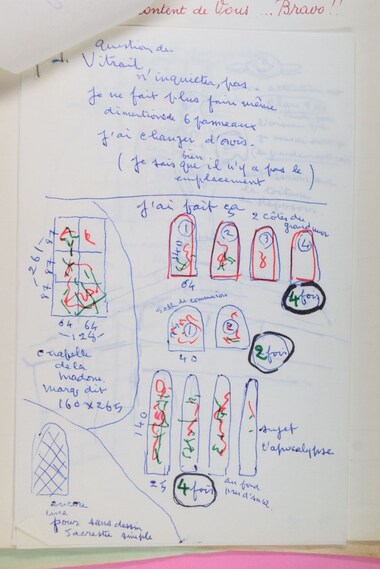 content de Vous .. Bravo!!
question du
Vitrail,
n'inquieter, pas.
Je ne fait plus faire même
dimentions de 6 panneaux
J'ai changer d'avis.
(Je sais bien que il n'y a pas le
emplacement)
J'ai fait ça
2 côtés du grand mur
1
2
3
4
140
64
4 fois
Salle de communion
1
2
40
2 fois
261
87 87 87
64 64
128
chapelle
de la
madone.
Marq dit
160 x 265
140
25
4 fois
sujet
l'apocalypse
au fond
encore
une
pour sans dessin
Sacrestie simple